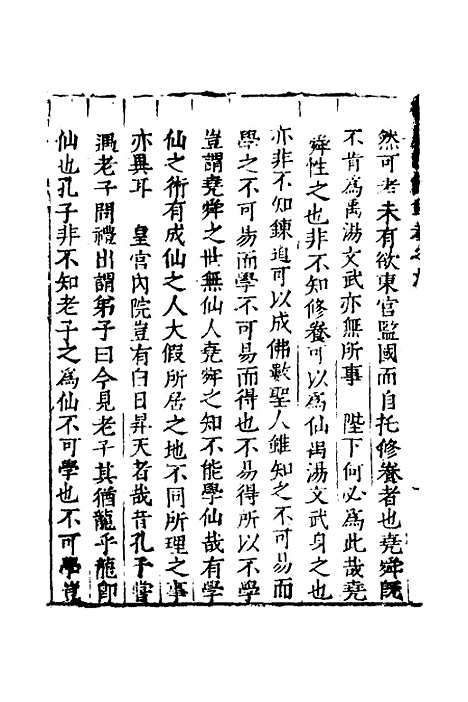 然可考未有欲東宮監國而自托修養者也堯舜既
不肯爲禹湯文武亦無所事　陛下何必爲此哉堯
舜性之也非不知修養可以爲仙禹湯文武身之也
亦非不知鍊道可以成佛數聖人雖知之不可易而
學之不可易而學不可易而得也不易得所以不學
豈謂堯舜之世無仙人堯舜之知不能學仙哉有學
仙之術有成仙之人大假所居之地不同所理之事
亦異耳　皇宮內院豈有白日昇天者哉昔孔子嘗
遇老子問禮出謂弟子曰今見老子其猶龍乎龍卽
仙也孔子非不知老子之爲仙不可學也不可學豈